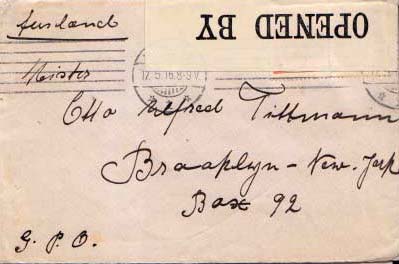 Ausland
OPENED BY
Meister
12.5.16.8-9V.
Otto Alfred Tittmann
Braaplyn - New-York
Box 92
G. P. O.